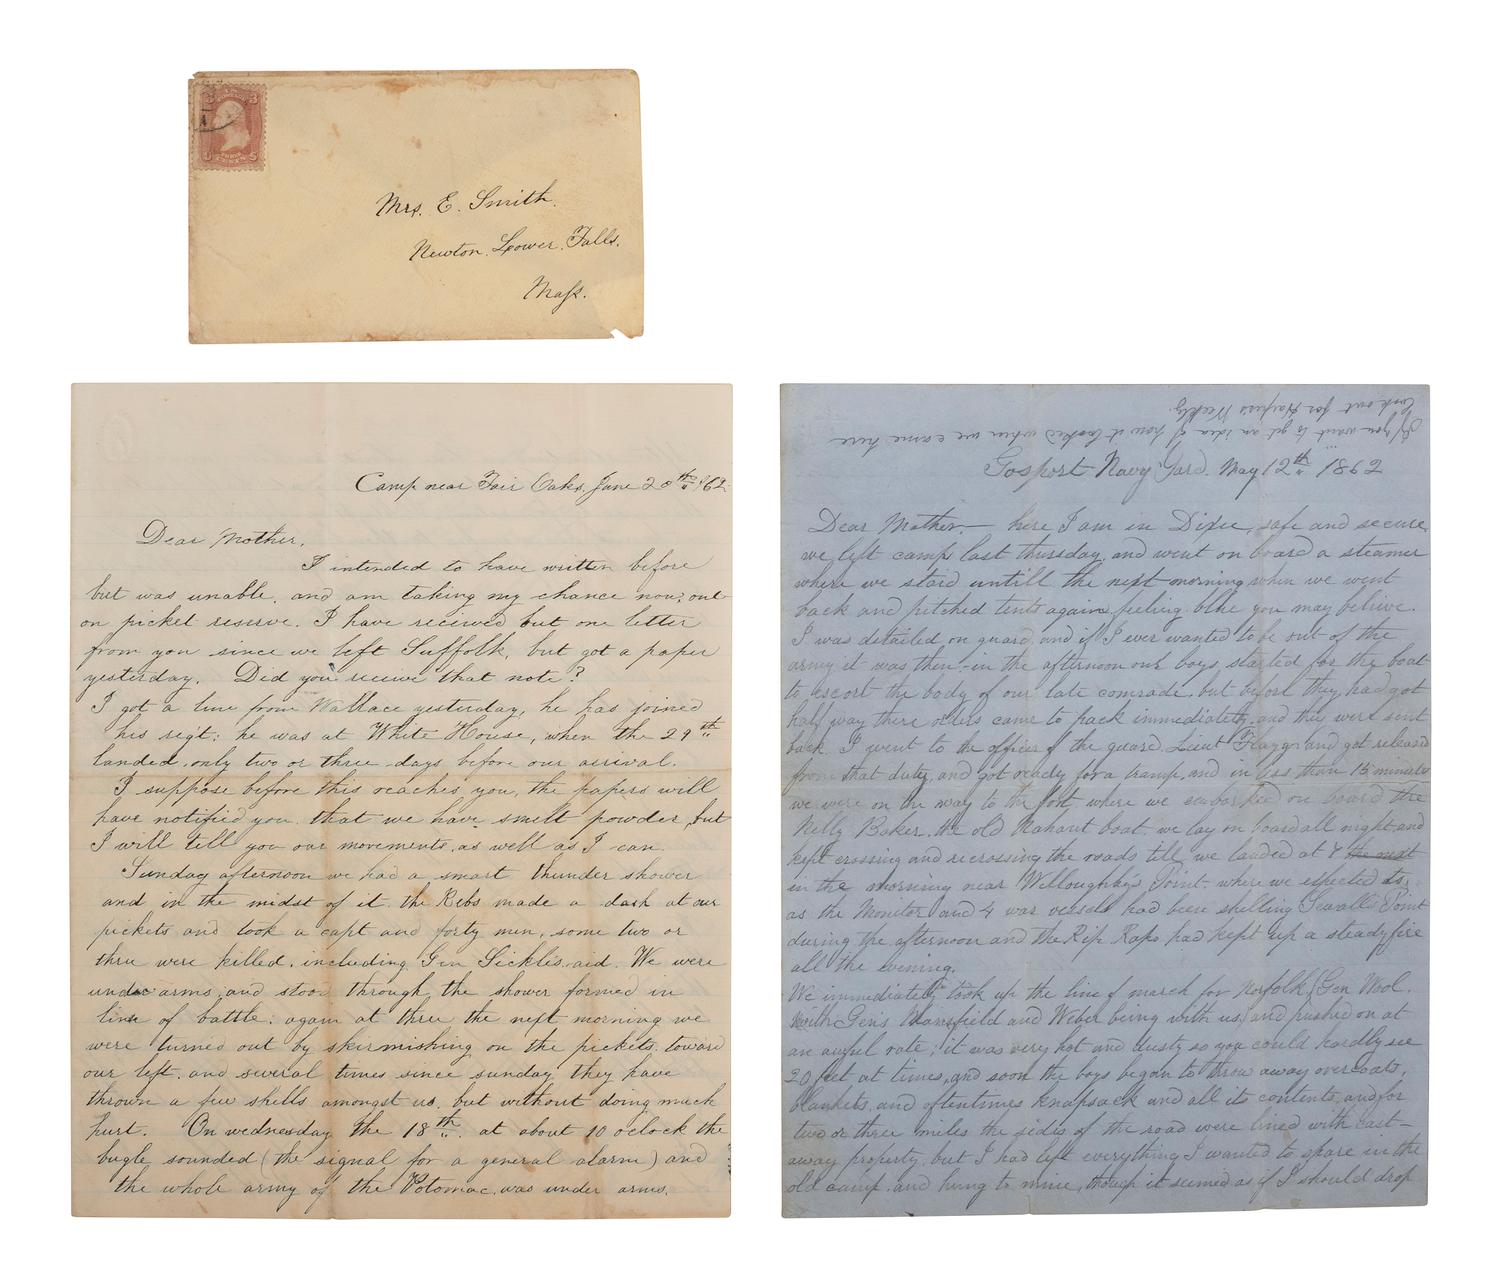 Mrs. E. Smith.
Newton. Lower. Falls.
Mass.
Camp near Fair Oaks, June 20th 1862.
Dear Mother,
I intended to have written before
but was unable, and am taking my chance now, out
on picket reserve. I have received but one letter
from you since we left Suffolk, but got a paper
yesterday. Did you receive that note?
I got a line from Wallace yesterday, he has joined
his reg't: he was at White House, when the 29th
landed, only two or three days before our arrival.
I suppose before this reaches you, the papers will
have notified you that we have smelt powder, but
I will tell you our movements, as well as I can.
Sunday afternoon we had a smart thunder shower
and in the midst of it the Rebs made a dash at our
pickets and took a capt and forty men, some two or
three were killed, including Gen Sickli's aid. We were
under arms, and stood through the shower formed in
line of battle: again at three the next morning we
were turned out by skirmishing on the pickets toward
our left, and several times since sunday they have
thrown a few shells amongst us, but without doing much
hurt. On wednesday the 18th at about 10 oclock the
bugle sounded (the signal for a general alarm) and
the whole army of the Potomac was under arms.
If you want to get an idea of how it looked when we came here
look out for Harpers Weekly
Gosport Navy Yard. May 12th 1862
Dear Mother— here I am in Dixie, safe and secure,
we left camp last thursday, and went on board a steamer
where we staid untill the next morning when we went
back and pitched tents again, feeling blue you may belive.
I was detailed on guard, and if I ever wanted to be out of the
army it was then- in the afternoon our boys started for the boat
to escort the body of our late comrade, but before they had got
half way there orders came to pack immediately, and they were sent
back. I went to the officer of the guard, Lieut and got released
from that duty, and got ready for a tramp, and in less than 15 minutes
we were on the way to the fort, where we embarked on board the
Nelly Baker, the old Nahant boat. we lay on board all night and
kept crossing and recrossing the roads till we landed at 7 the next
in the morning near Willoughby's Point- where we expected to,
as the Monitor and 4 war vessels had been shelling Sewalls Point
during the afternoon and the Rip Raps had kept up a steady fire
all the evening.
We immediately took up the line of march for Norfolk, (Gen Wool.
with Gen's Mansfield and Weber being with us) and pushed on at
an awful rate; it was very hot and dusty so you could hardly see
20 feet at times, and soon the boys began to throw away overcoats,
blankets, and oftentimes knapsack and all its contents, and for
two or three miles the sides of the road were lined with cast-
away property, but I had left everything I wanted to spare in the
old camp. and hung to mine, though it seemed as if I should drop